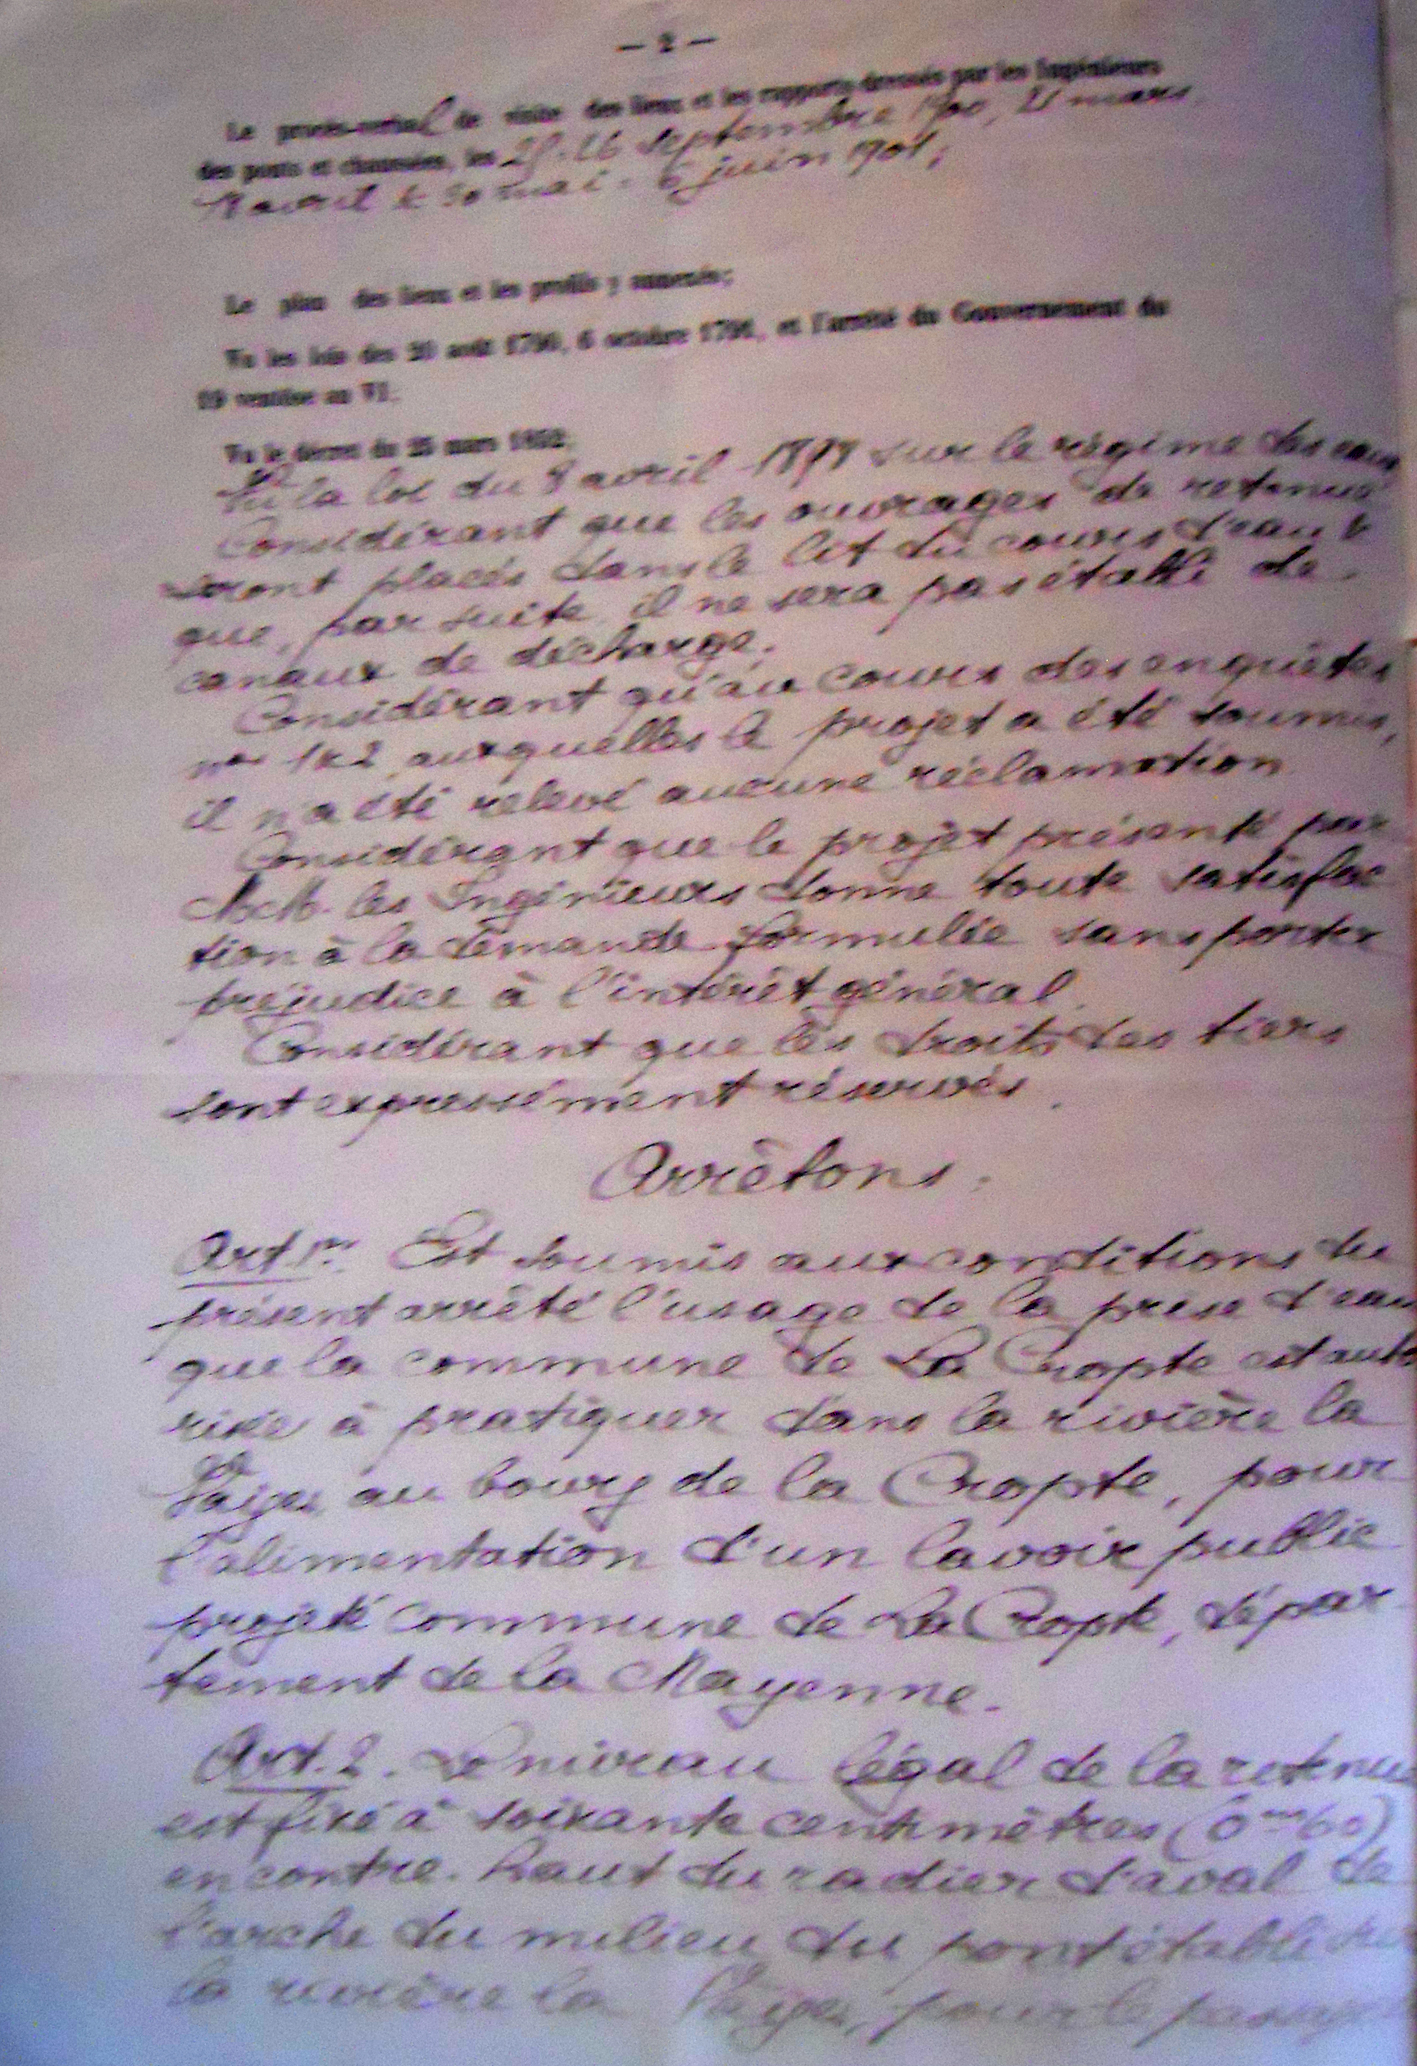 — 2 —
Le procès-verbal de visite des lieux et les rapports dressés par les Ingénieurs
des ponts et chaussées, les 25-26 septembre 1900, 21 mars
avril & 30 mai - 6 juin 1901;
Le plan des lieux et les profils y annexés;
Vu les lois des 20 août 1790, 6 octobre 1791, et l'arrêté du Gouvernement du
19 ventôse an VI.
Vu le décret du 25 mars 1852.
Vu la loi du 8 avril 1898 sur le régime des eaux
Considérant que les ouvrages de retenue
seront placés dans le lit du cours d'eau &
que, par suite, il ne sera pas établi de
canaux de décharge;
Considérant qu'au cours des enquêtes
nos 1 & 2 auxquelles le projet a été soumis,
il n'a été relevé aucune réclamation
Considérant que le projet présenté par
M.M. les Ingénieurs donne toute satisfac
tion à la demande formulée sans porter
préjudice à l'intérêt général.
Considérant que les droits des tiers
sont expressément réservés.
Arrêtons:
Art 1er. Est soumis aux conditions du
présent arrêté l'usage de la prise d'eau
que la commune de La Cropte est auto
risée à pratiquer dans la rivière la
Vaiges au bourg de la Cropte, pour
l'alimentation d'un lavoir public
projeté commune de La Cropte, dépar-
tement de la Mayenne.
Art. 2. Le niveau légal de la retenue
est fixé à soixante centimètres (0m60)
en contre-haut du radier d'aval de
l'arche du milieu du pont établi sur
la rivière la Vaiges, pour le passage